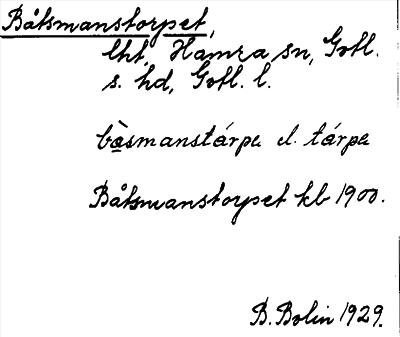 Båtsmanstorpet,
lht, Hamra sn, Gotl.
s. hd, Gotl. l.
bàsmanstárpe el. tárpe
Båtsmanstorpet kb 1900.
B. Bolin 1929.